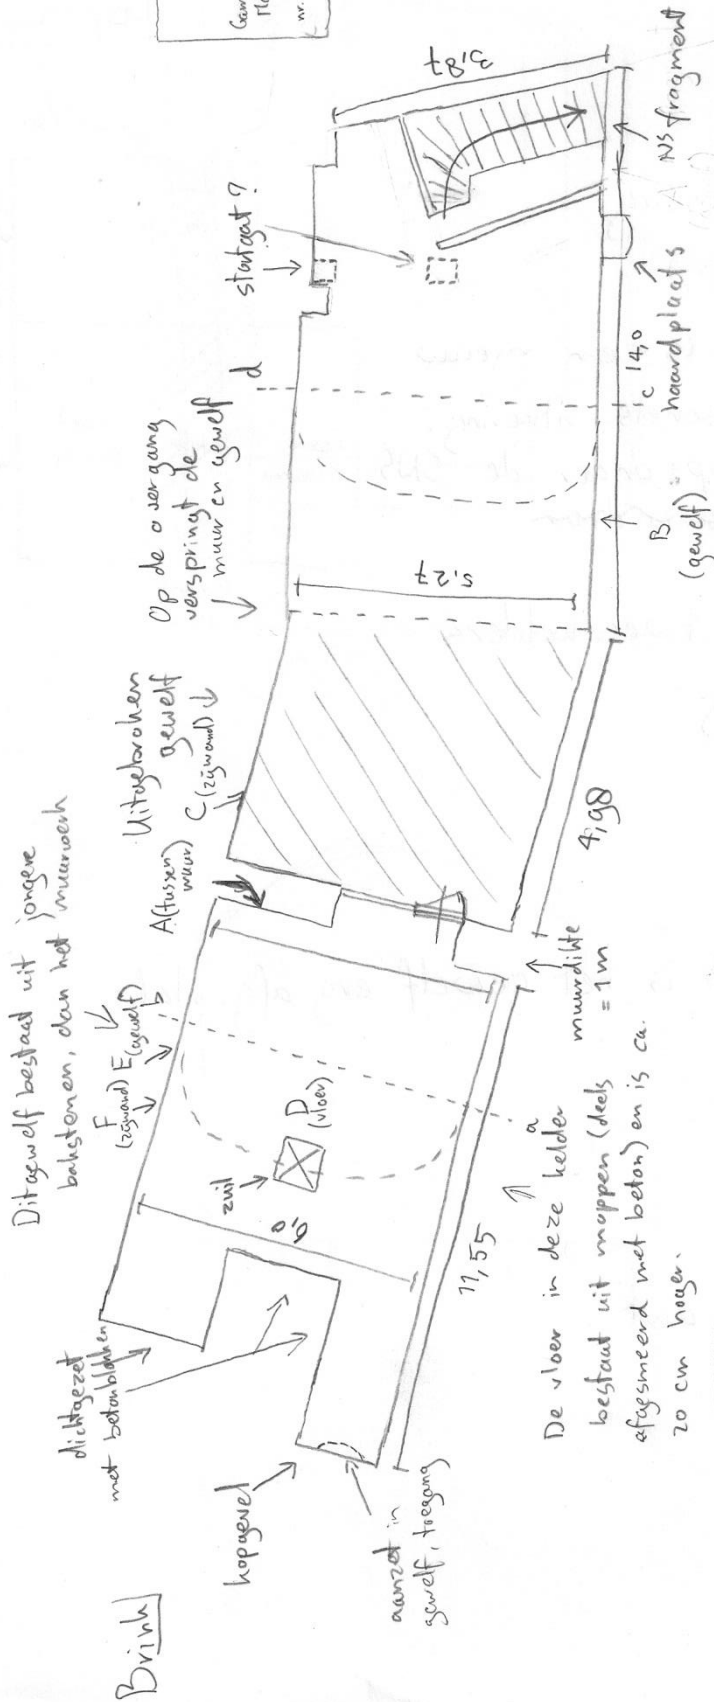 Brink
dichtgezet
met betonblokken
kopgevel
aanzet in
gewelf, toegang
Dit gewelf bestaat uit jongere
bakstenen, dan het muurwerk
F
(zijwand)
E
(gewelf)
b
zuil
D
(vloer)
6,0
11,55
a
De vloer in deze kelder
bestaat uit moppen (deels
afgesmeerd met beton) en is ca.
20 cm hoger.
A (tussen
muur)
muurdikte
= 1m
Uitgebroken
gewelf
C (zijwand)
4,98
Op de overgang
verspringt de
muur en gewelf
5,27
B
(gewelf)
d
c
14,0
stortgat?
haardplaats
3,87
NS fragment
nr.